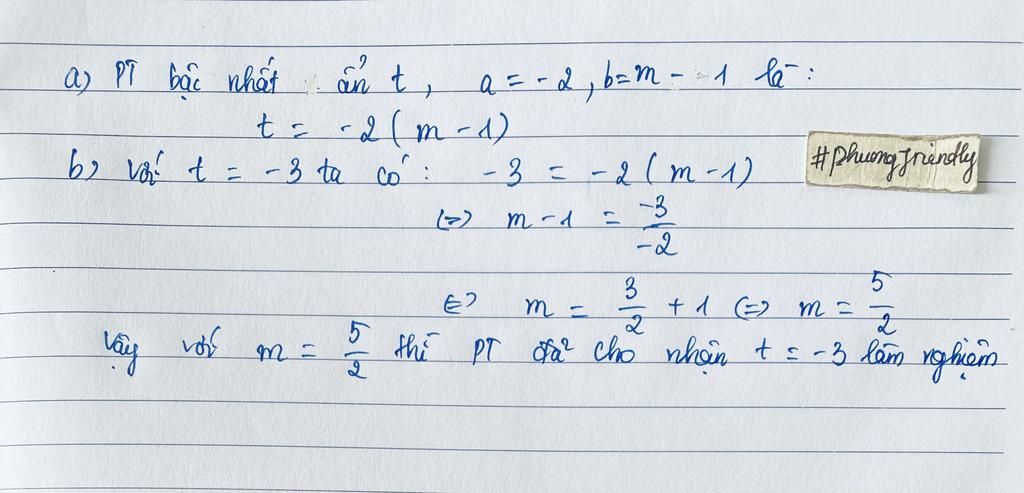 a) PT bậc nhất ẩn t, a = -2, b = m - 1 là:
t = -2(m - 1)
#phuongfriendly
b) với t = -3 ta có: -3 = -2(m - 1)
(=) m - 1 = -3/-2
(=) m = 3/2 + 1 (=) m = 5/2
Vậy với m = 5/2 thì PT đã cho nhận t = -3 làm nghiệm